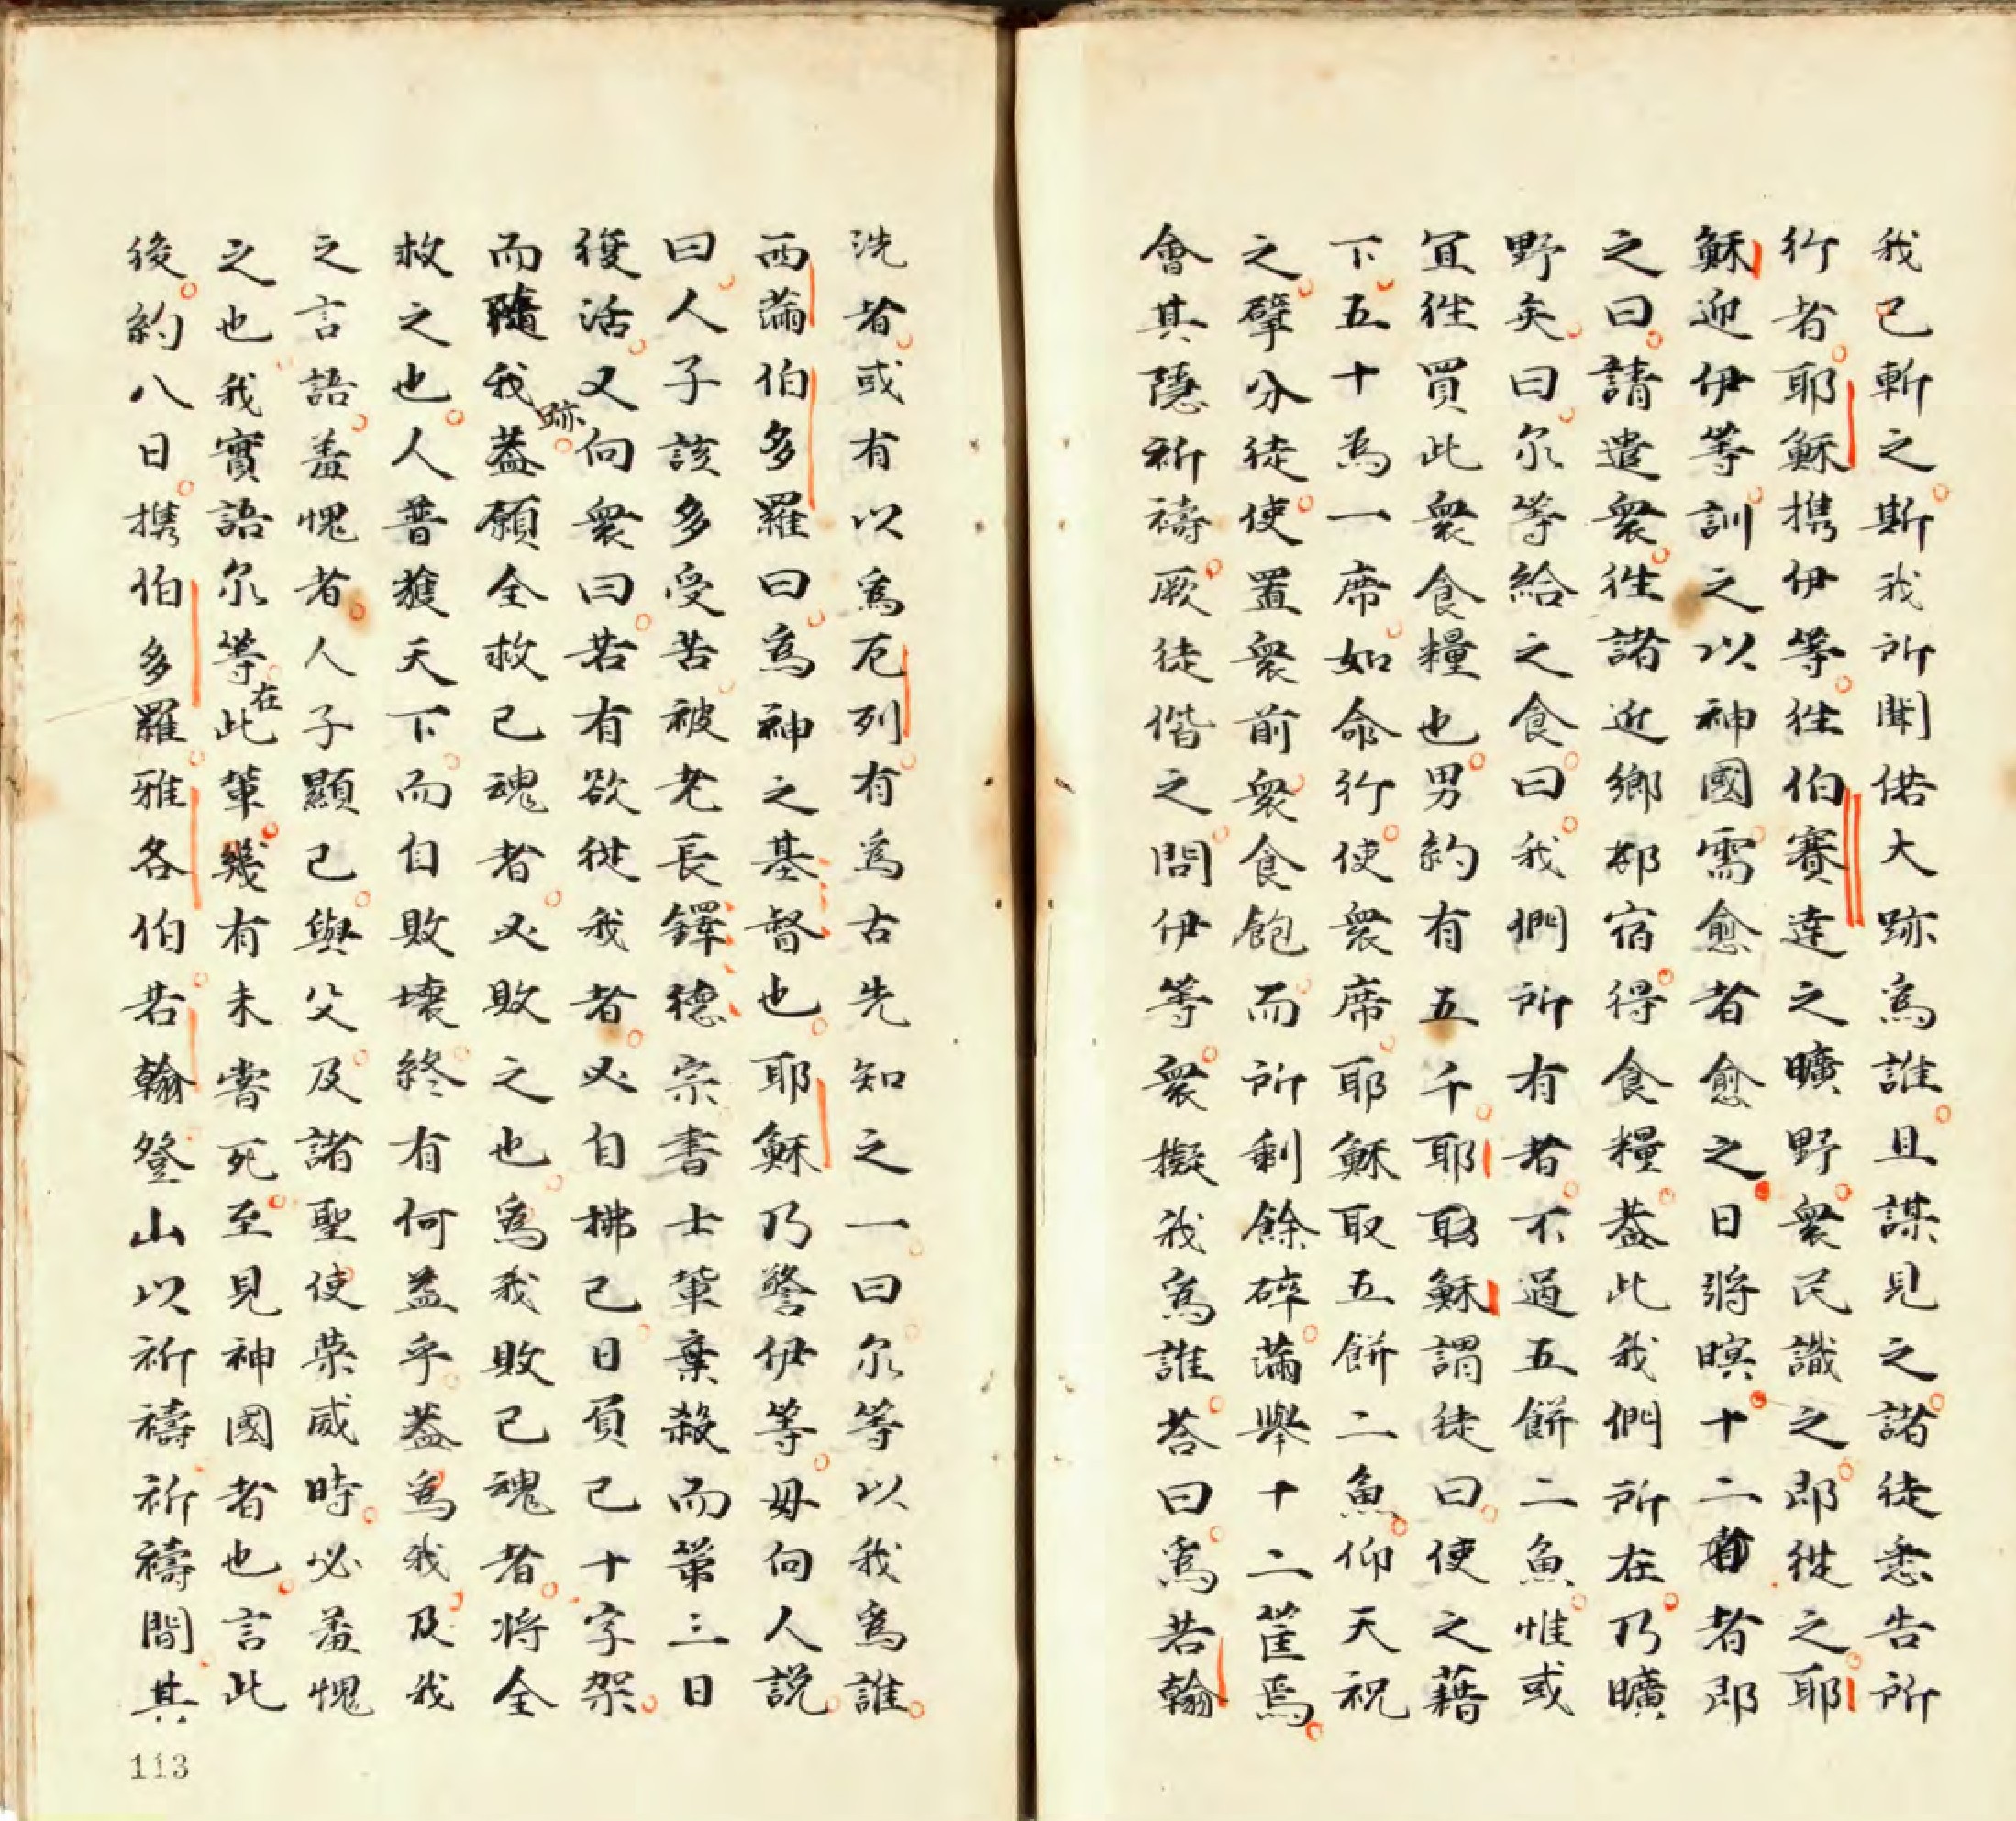 我已斬之斯我所聞偌大跡為誰且謀見之諸徒悉告所
行者耶穌攜伊等徃伯賽逹之曠野衆民識之即從之耶
穌迎伊等訓之以神國需愈者愈之日將暝十二者即
之曰請遣衆徃諸近鄉邨宿得食糧蓋此我們所在乃曠
野矣曰尔等給之食曰我們所有者不過五餅二魚惟或
宜徃買此衆食糧也男約有五千耶穌謂徒曰使之藉
下五十為一席如命行使衆席耶穌取五餅二魚仰天祝
之擘分徒使置衆前衆食飽而所剩餘碎滿舉十二筐焉
會其隱祈禱厥徒偕之問伊等衆擬我為誰荅曰為若翰
洗者或有以為厄列有為古先知之一曰尔等以我為誰
西滿伯多羅曰為神之基督也耶穌乃警伊等毋向人説
曰人子該多受苦被老長鐸德宗書士輩棄殺而第三日
復活又向衆曰若有欲從我者必自拂己日負己十字架
而隨我跡蓋願全救己魂者必敗之也為我敗己魂者將全
救之也人普獲天下而自敗壞終有何益乎蓋為我及我
之言語羞愧者人子顯己與父及諸聖使榮威時必羞愧
之也我實語尔等在此輩幾有未甞死至見神國者也言此
後約八日攜伯多羅雅各伯若翰登山以祈禱祈禱間其
113